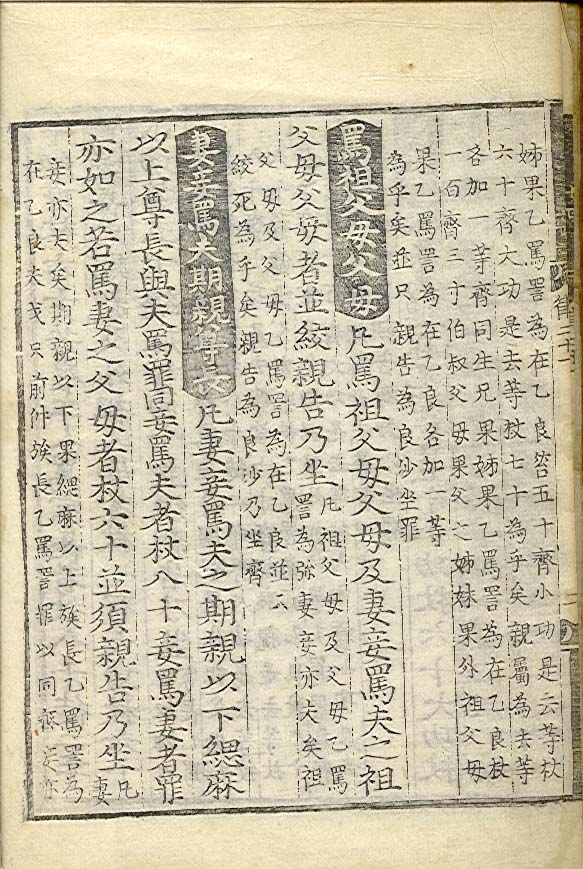 姊果乙罵詈爲在乙良笞五十齊小功是去等杖
六十齊大功是去等杖七十爲乎矣親屬爲去等
各加一等齊同生兄果姊果乙罵詈爲在乙良杖
一百齊三寸伯叔父母果父之姊妹果外祖父母
果乙罵詈爲在乙良各加一等
爲乎矣並只親告爲良沙坐罪
罵祖父母父母 凡罵祖父母父母及妻妾罵夫之祖
父母父母者並絞親告乃坐
凡祖父母及父母乙罵
詈爲旀妻妾亦夫矣祖
父母及父母乙罵詈爲在乙良並只
絞死爲乎矣親告爲良沙乃坐齊
妻妾罵夫期親尊長 凡妻妾罵夫之期親以下緦麻
以上尊長與夫罵罪同妾罵夫者杖八十妾罵妻者罪
亦如之若罵妻之父母者杖六十並須親告乃坐
凡妻
妾亦夫矣期親以下果緦麻以上族長乙罵詈爲
在乙良夫戈只前件族長乙罵詈罪以同